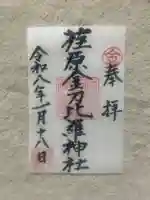 奉拝
荏原金刀比羅神社
令和八年一月十八日